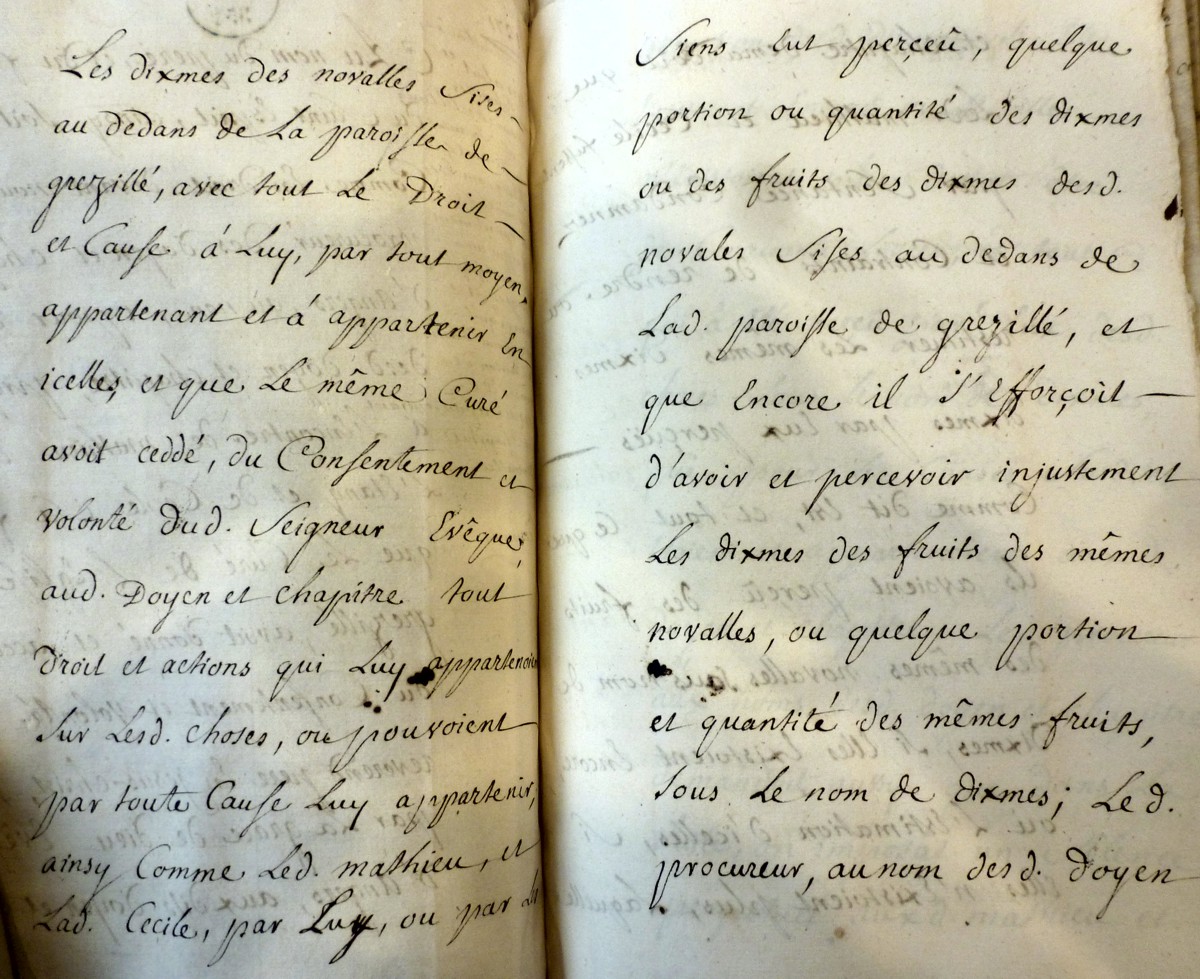 Les dixmes des novalles Sises
au dedans de La paroisse de
grezillé, avec tout Le Droit
et Cause à Luy, par tout moyen,
appartenant et à appartenir En
icelles, et que Le même Curé
avoit ceddé, du Consentement et
volonté dud. Seigneur Evêque,
aud. Doyen et chapitre tout
Droit et actions qui Luy appartenoit
Sur Lesd. choses, ou pouvoient
par toute Cause Luy appartenir,
ainsy Comme Led. mathieu, et
Lad. Cecile, par Luy, ou par Les
Siens Eut perçeû, quelque
portion ou quantité des dixmes
ou des fruits des dixmes desd.
novales Sises au dedans de
Lad. paroisse de grezillé, et
que Encore il S'Efforçoit
d'avoir et percevoir injustement
Les dixmes des fruits des mêmes
novalles, ou quelque portion
et quantité des mêmes fruits,
Sous Le nom de dixmes; Led.
procureur, au nom desd. Doyen